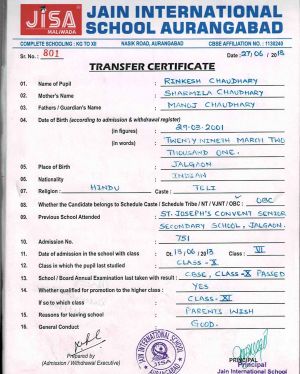 JISA
MALIWADA
JAIN INTERNATIONAL
SCHOOL AURANGABAD
COMPLETE SCHOOLING : KG TO XII NASIK ROAD, AURANGABAD CBSE AFFILIATION NO. : 1130240
Sr. No. : 801 Date : 27/06/2018
TRANSFER CERTIFICATE
01. Name of Pupil : RINKESH CHAUDHARY
02. Mother's Name : SHARMILA CHAUDHARY
03. Fathers / Guardian's Name : MANOJ CHAUDHARY
04. Date of Birth (according to admission & withdrawal register)
(in figures) : 29-03-2001
(in words) : TWENTY NINETH MARCH TWO
THOUSAND ONE.
05. Place of Birth : JALGAON
06. Nationality : INDIAN
07. Religion : HINDU Caste : TELI
08. Whether the Candidate belongs to Schedule Caste / Schedule Tribe / NT / VJNT / OBC : OBC
09. Previous School Attended : ST. JOSEPH'S CONVENT SENIOR
SECONDARY SCHOOL, JALGAON.
10. Admission No. : 751
11. Date of admission in the school with class : Dt. 15/06/2013 Class : VI
12. Class in which the pupil last studied : CLASS - X
13. School / Board Annual Examination last taken with result : CBSE, CLASS-X PASSED
14. Whether qualified for promotion to the higher class : YES
If so to which class : CLASS-XI
15. Reasons for leaving school : PARENTS WISH
16. General Conduct : GOOD.
Prepared by
(Admission / Withdrawal Executive)
JAIN INTERNATIONAL SCHOOL
JISA
AURANGABAD
PRINCIPAL
Principal
Jain International School